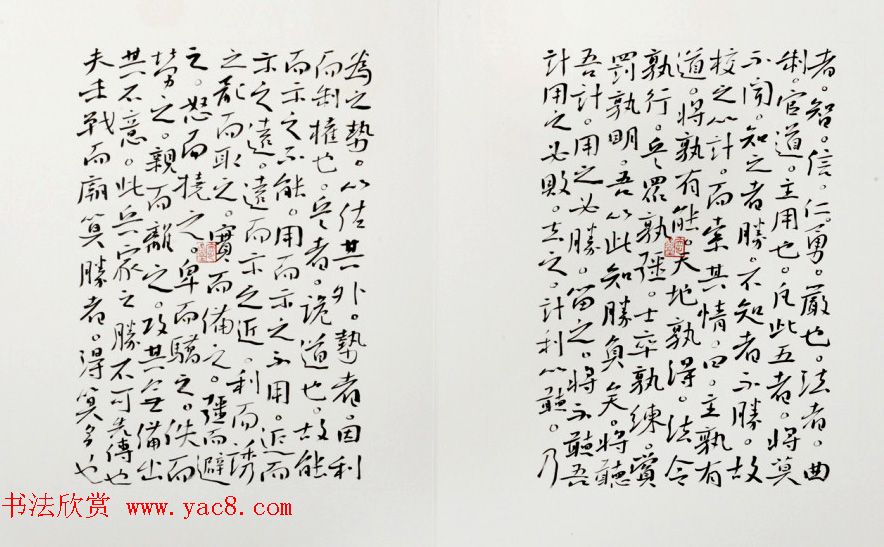 者。智。信。仁。勇。嚴也。法者。曲
制。官道。主用也。凡此五者。將莫
不聞。知之者勝。不知者不勝。故
校之以計。而索其情。曰。主孰有
道。將孰有能。天地孰得。法令
孰行。兵眾孰彊。士卒孰練。賞
罰孰明。吾以此知勝負矣。將聽
吾計。用之必勝。留之。將不聽吾
計用之必敗。去之。計利以聽。乃
為之勢。以佐其外。勢者。因利
而制權也。兵者。詭道也。故能
而示之不能。用而示之不用。近而
示之遠。遠而示之近。利而誘
之亂而取之。實而備之。彊而避
之。怒而撓之。卑而驕之。佚而
勞之。親而離之。攻其無備出
其不意。此兵家之勝不可先傳也
夫未戰而廟算勝者。得算多也
书法欣赏 www.yac8.com